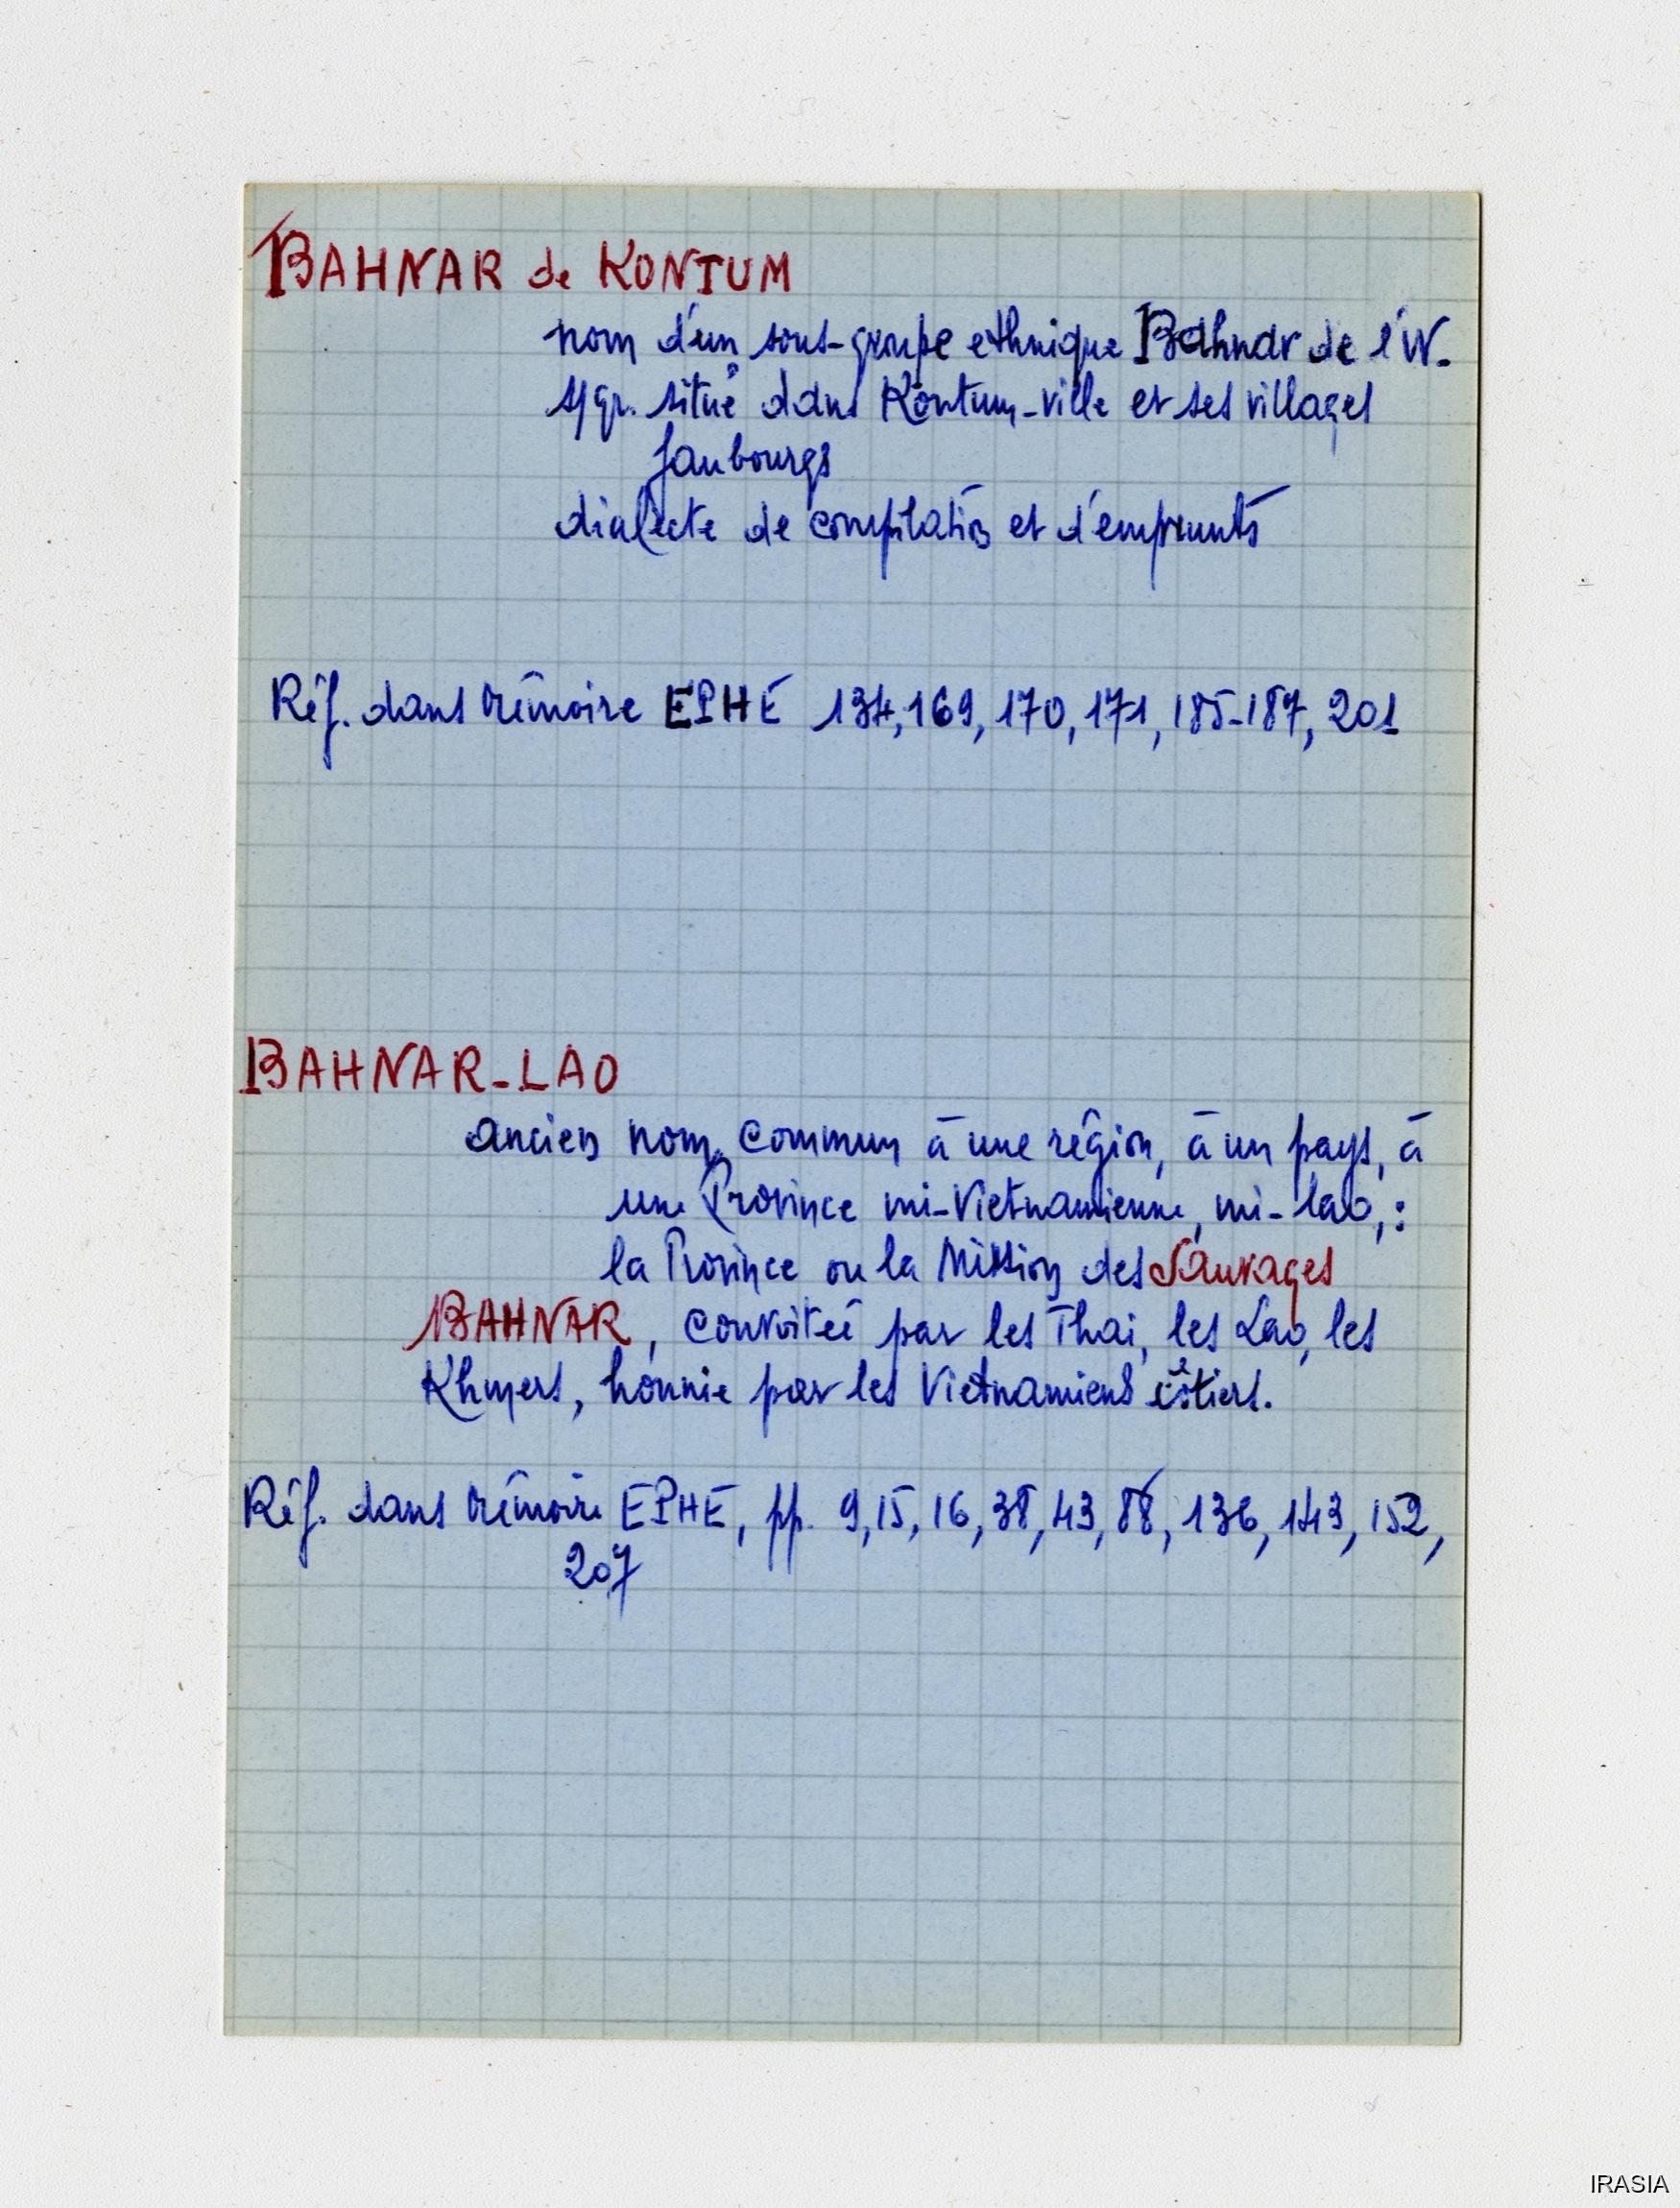 BAHNAR de KONTUM
nom d'un sous-groupe ethnique Bahnar de l'W.
s/gr. situé dans Kontum-ville et ses villages
faubourgs
dialecte de compilation et d'emprunts
Réf. dans mémoire EPHE 134, 169, 170, 171, 185-187, 201
BAHNAR-LAO
ancien nom commun à une région, à un pays, à
une Province mi-Vietnamienne, mi-lao, :
la Province ou la Mission des Sauvages
BAHNAR, convoitée par les Thai, les Lao, les
Khmers, honnie par les Vietnamiens côtiers.
Réf. dans mémoire EPHE, pp. 9, 15, 16, 38, 43, 88, 136, 143, 152,
207
IRASIA